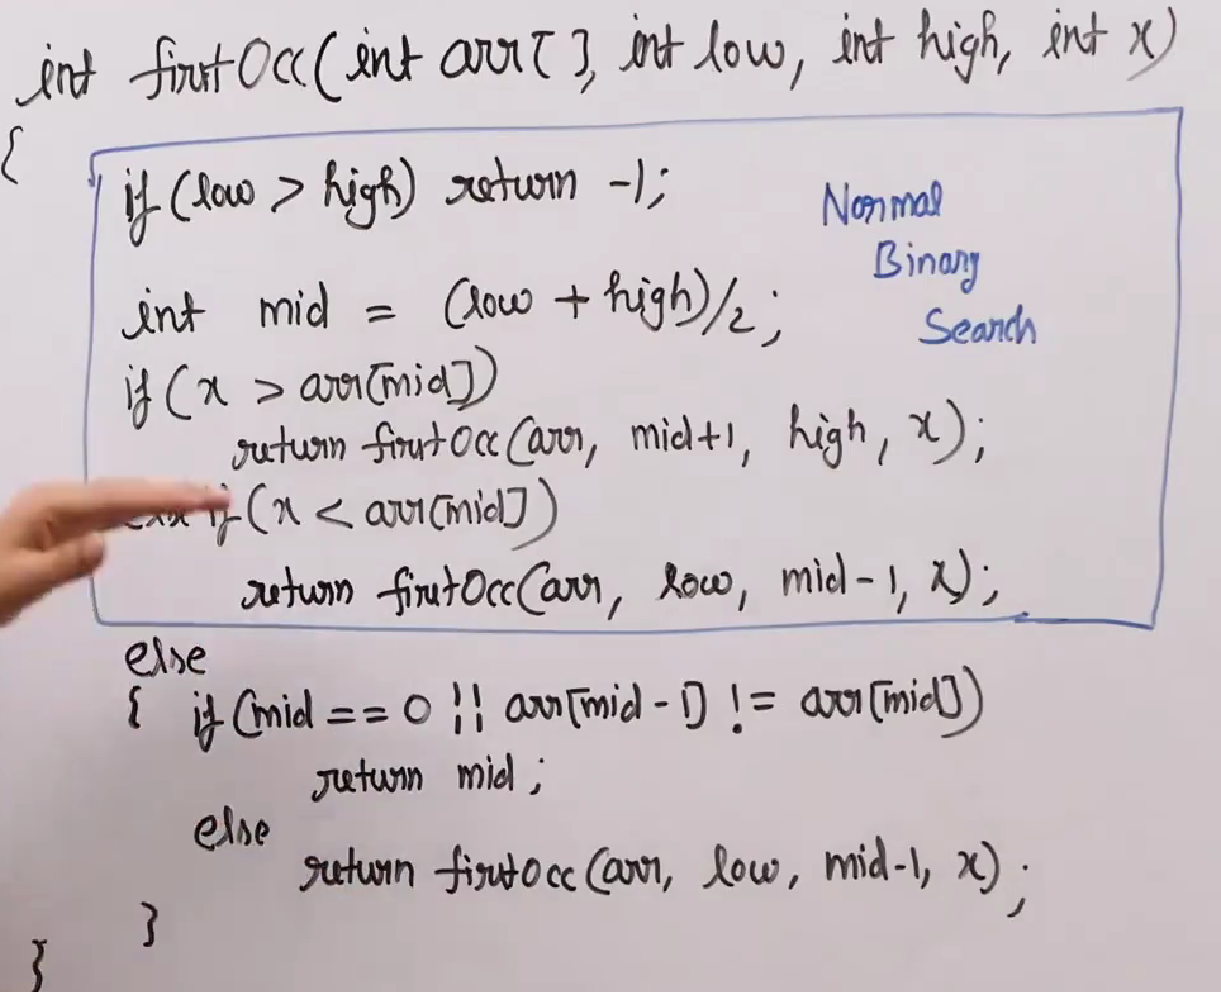 int firstOcc(int arr[], int low, int high, int x)
{
if (low > high) return -1;
Normal
Binary
Search
int mid = (low + high)/2;
if (x > arr[mid])
return firstOcc(arr, mid+1, high, x);
if (x < arr[mid])
return firstOcc(arr, low, mid-1, x);
else
{ if (mid == 0 || arr[mid-1] != arr[mid])
return mid;
else
return firstOcc(arr, low, mid-1, x);
}
}